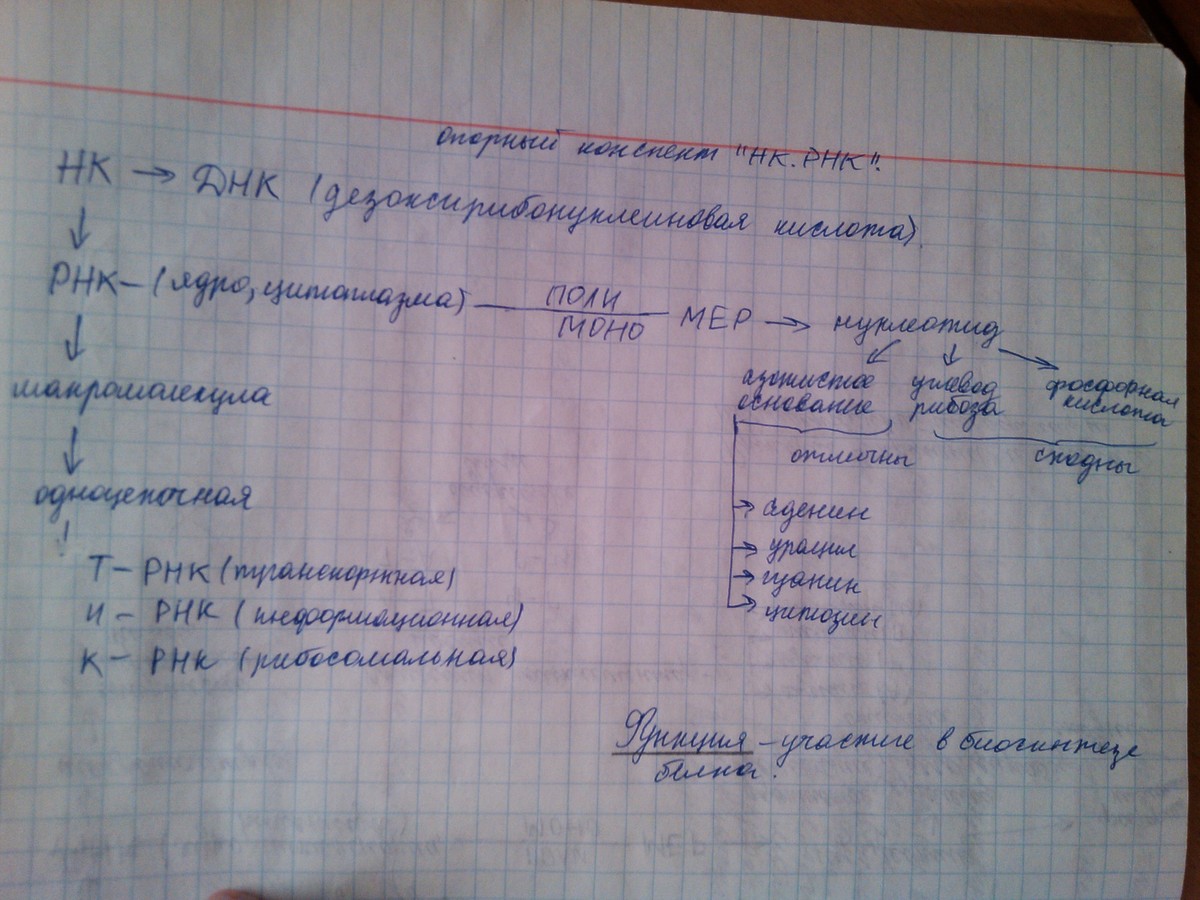 опорный конспект "НК. РНК".
НК → ДНК (дезоксирибонуклеиновая кислота).
РНК – (ядро, цитоплазма) ПОЛИ
МОНО МЕР → нуклеотид
макромолекула
азотистое углевод фосфорная
основание рибоза кислота
отличны сходны
одноцепочная
→ аденин
→ урацил
→ гуанин
→ цитозин
Т – РНК (транспортная)
И – РНК (информационная)
К – РНК (рибосомальная)
Функция – участие в биосинтезе
белка.